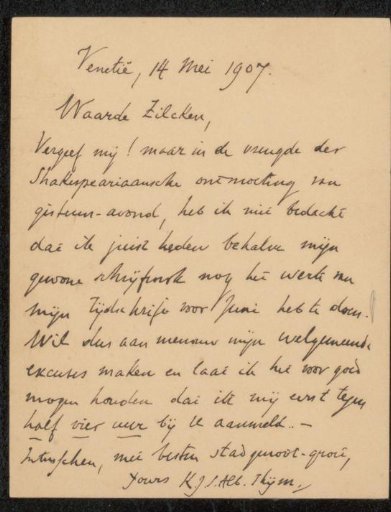 Venetië, 14 Mei 1907.
Waarde Zilcken,
Vergeef mij! maar in de vreugde der
Shakespeariaansche ontmoeting van
gisteren-avond, heb ik niet bedacht
dat ik juist heden behalve mijn
gewone schrijfwerk nog het werk van
mijn Tijdschrift voor Juni heb te doen.
Wil dus aan mevrouw mijn welgemeende
excuses maken en laat ik het voor goed
mogen houden dat ik mij eerst tegen
half vier uur bij U aanmeld. -
Intusschen, met besten stadgenoot-groet,
Yours K.J.L. Alb. Thijm